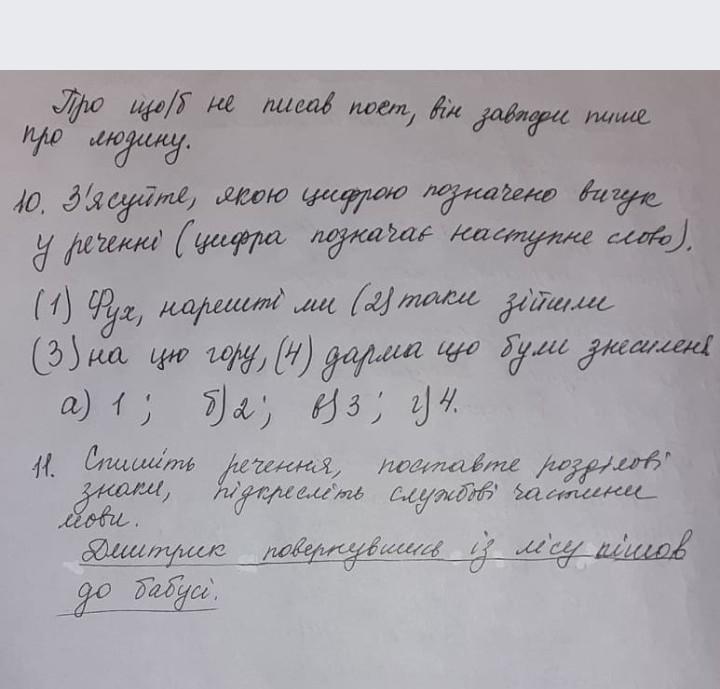 Про що/б не писав поет, він завжди пише
про людину.
10. З'ясуйте, якою цифрою позначено вигук
у реченні (цифра позначає наступне слово).
(1) Фух, нарешті ми (2) таки зійшли
(3) на цю гору, (4) дарма що були знесилені
а) 1 ; б) 2 ; в) 3 ; г) 4.
11. Спишіть речення, поставте розділові
знаки, підкресліть службові частини
мови.
Дмитрик повернувшись із лісу пішов
до бабусі.